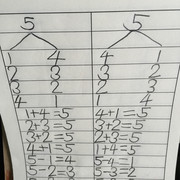 5 5
1 4 4 1
2 3 3 2
3 2 2 3
4 1 1 4
1+4=5 4+1=5
2+3=5 3+2=5
3+2=5 2+3=5
4+1=5 1+4=5
5-1=4 5-4=1
5-2=3 5-3=2